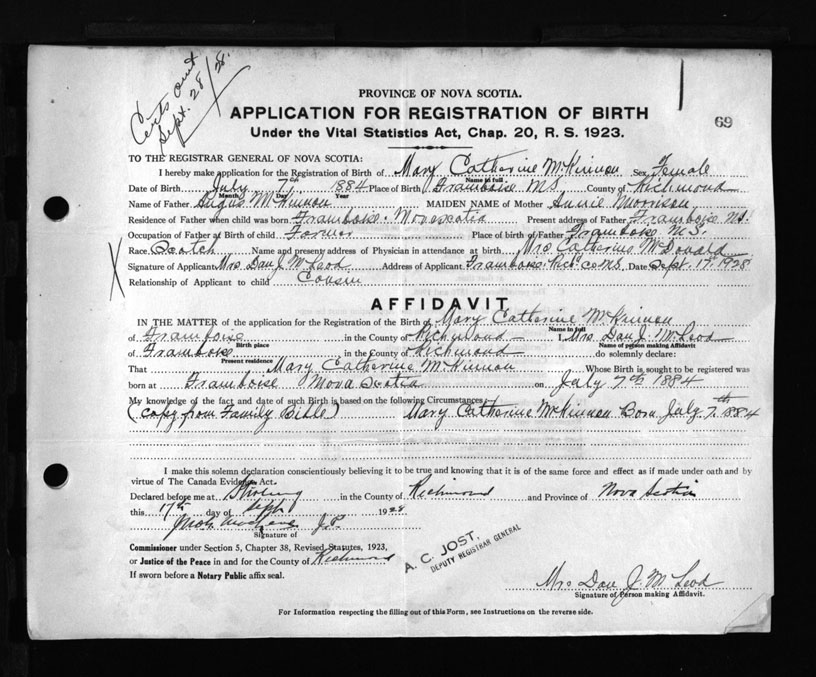 Certs out
Sept. 28/28.
PROVINCE OF NOVA SCOTIA.
APPLICATION FOR REGISTRATION OF BIRTH
69
Under the Vital Statistics Act, Chap. 20, R. S. 1923.
TO THE REGISTRAR GENERAL OF NOVA SCOTIA:
I hereby make application for the Registration of Birth of Mary Catherine McKinnon Sex Female
Name in full
Date of Birth July 7th 1884 Place of Birth Framboise N.S. County of Richmond
Month Day Year
Name of Father Angus McKinnon MAIDEN NAME of Mother Annie Morrison
Residence of Father when child was born Framboise Nova Scotia Present address of Father Framboise N.S.
Occupation of Father at Birth of child Farmer Place of birth of Father Framboise N.S.
Race Scotch Name and present address of Physician in attendance at birth Mrs Catherine
Signature of Applicant Mrs Dan J McLeod Address of Applicant Framboise Rich. Co N.S. Date Sept. 17th 1928
Relationship of Applicant to child Cousin
AFFIDAVIT
IN THE MATTER of the application for the Registration of the Birth of Mary Catherine McKinnon
Name in full
of Framboise in the County of Richmond I, Mrs Dan J. McLeod
Birth place Name of person making Affidavit
of Framboise in the County of Richmond do solemnly declare:
Present residence
That Mary Catherine McKinnon Whose Birth is sought to be registered was
born at Framboise Nova Scotia on July 7th 1884
My knowledge of the fact and date of such Birth is based on the following Circumstances:
(Copy from Family Bible) Mary Catherine McKinnon Born July 7th 1884
I make this solemn declaration conscientiously believing it to be true and knowing that it is of the same force and effect as if made under oath and by
virtue of The Canada Evidence Act.
Declared before me at Stirling in the County of Richmond and Province of Nova Scotia
this 17th day of Sept 1928
J.P.
Signature of
Commissioner under Section 5, Chapter 38, Revised Statutes, 1923,
or Justice of the Peace in and for the County of Richmond
If sworn before a Notary Public affix seal.
A. C. JOST.
DEPUTY REGISTRAR GENERAL
Mrs Dan J. McLeod
Signature of Person making Affidavit.
For Information respecting the filling out of this Form, see Instructions on the reverse side.